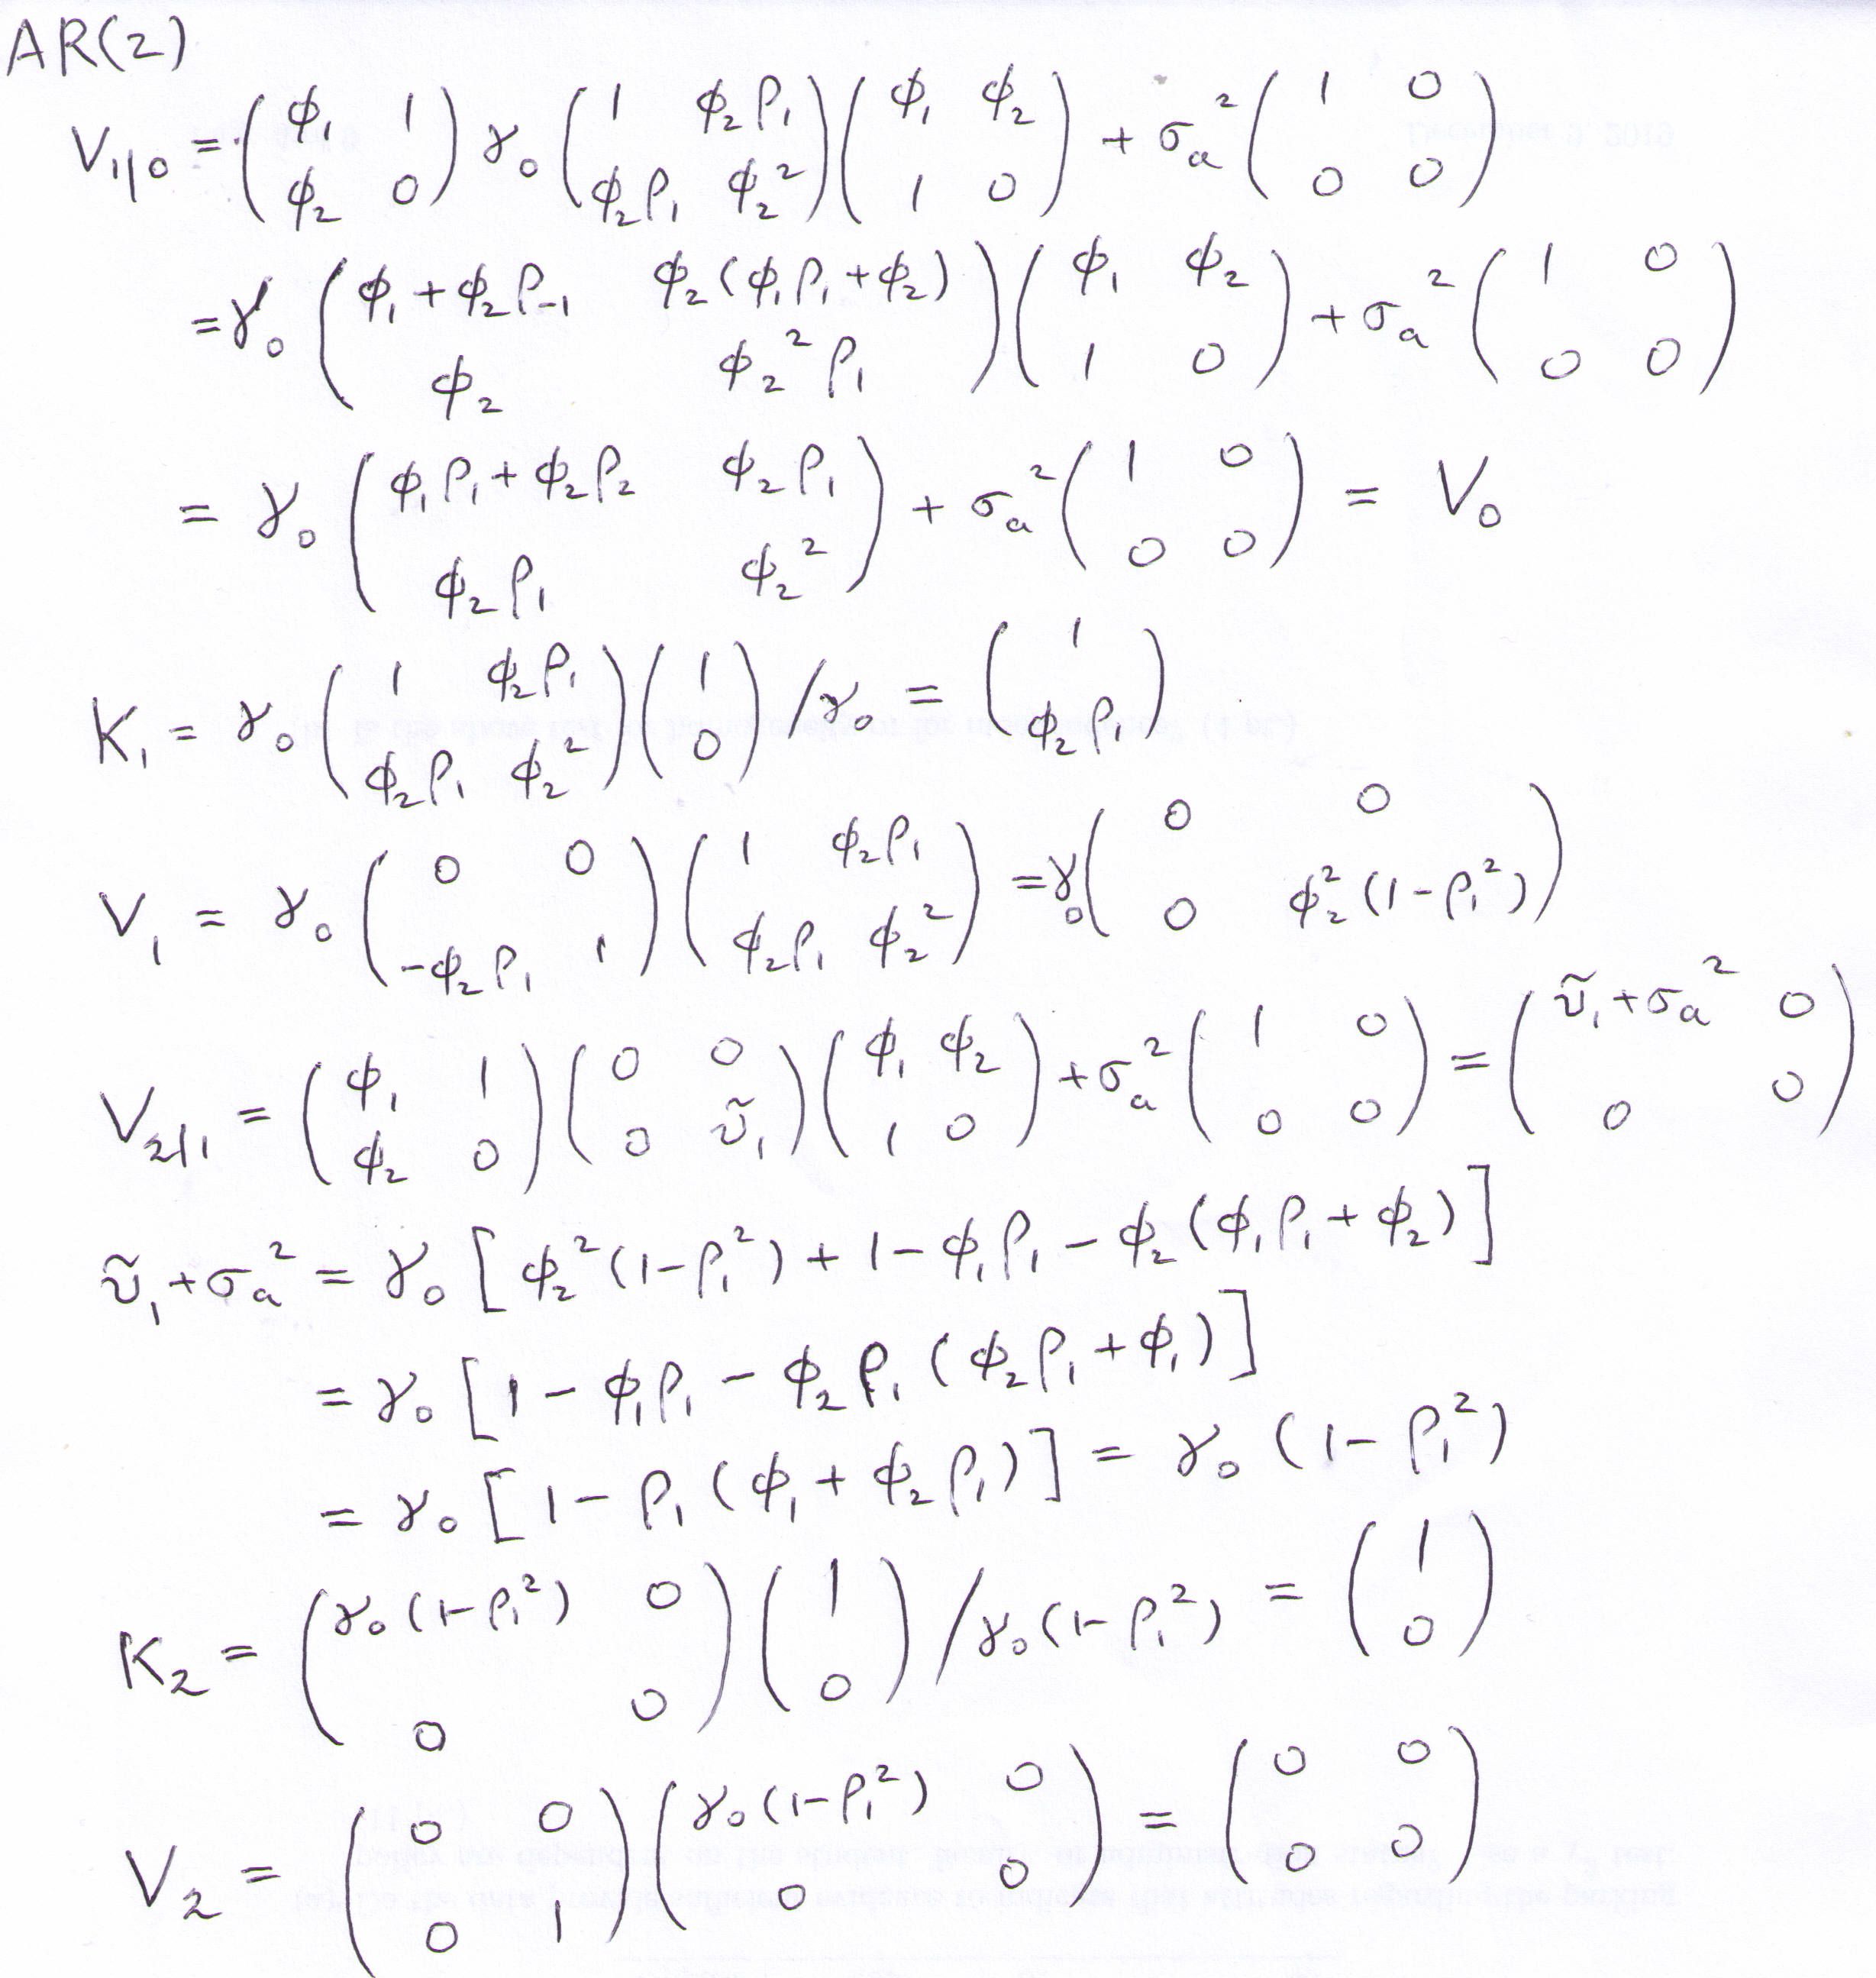 AR(2)
V₁|₀ = (φ₁ 1; φ₂ 0) γ₀ (1 φ₂ρ₁; φ₂ρ₁ φ₂²) (φ₁ φ₂; 1 0) + σₐ² (1 0; 0 0)
= γ₀ (φ₁ + φ₂ρ₋₁ φ₂(φ₁ρ₁ + φ₂); φ₂ φ₂²ρ₁) (φ₁ φ₂; 1 0) + σₐ² (1 0; 0 0)
= γ₀ (φ₁ρ₁ + φ₂ρ₂ φ₂ρ₁; φ₂ρ₁ φ₂²) + σₐ² (1 0; 0 0) = V₀
K₁ = γ₀ (1 φ₂ρ₁; φ₂ρ₁ φ₂²) (1; 0) / γ₀ = (1; φ₂ρ₁)
V₁ = γ₀ (0 0; -φ₂ρ₁ 1) (1 φ₂ρ₁; φ₂ρ₁ φ₂²) = γ₀ (0 0; 0 φ₂²(1-ρ₁²))
V₂|₁ = (φ₁ 1; φ₂ 0) (0 0; 0 ṽ₁) (φ₁ φ₂; 1 0) + σₐ² (1 0; 0 0) = (ṽ₁ + σₐ² 0; 0 0)
ṽ₁ + σₐ² = γ₀ [φ₂²(1-ρ₁²) + 1 - φ₁ρ₁ - φ₂(φ₁ρ₁ + φ₂)]
= γ₀ [1 - φ₁ρ₁ - φ₂ρ₁(φ₂ρ₁ + φ₁)]
= γ₀ [1 - ρ₁(φ₁ + φ₂ρ₁)] = γ₀ (1-ρ₁²)
K₂ = (γ₀(1-ρ₁²) 0; 0 0) (1; 0) / γ₀(1-ρ₁²) = (1; 0)
V₂ = (0 0; 0 1) (γ₀(1-ρ₁²) 0; 0 0) = (0 0; 0 0)